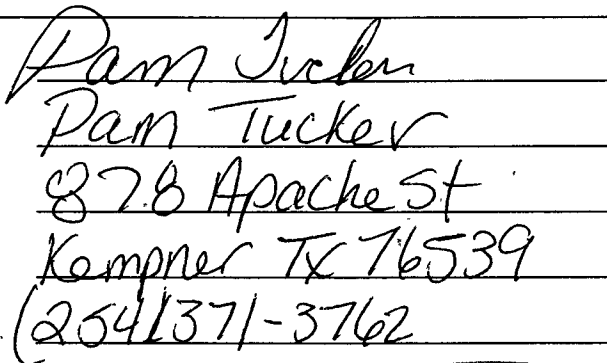 Pam Tucker
Pam Tucker
878 Apache St
Kempner Tx 76539
(254)371-3762